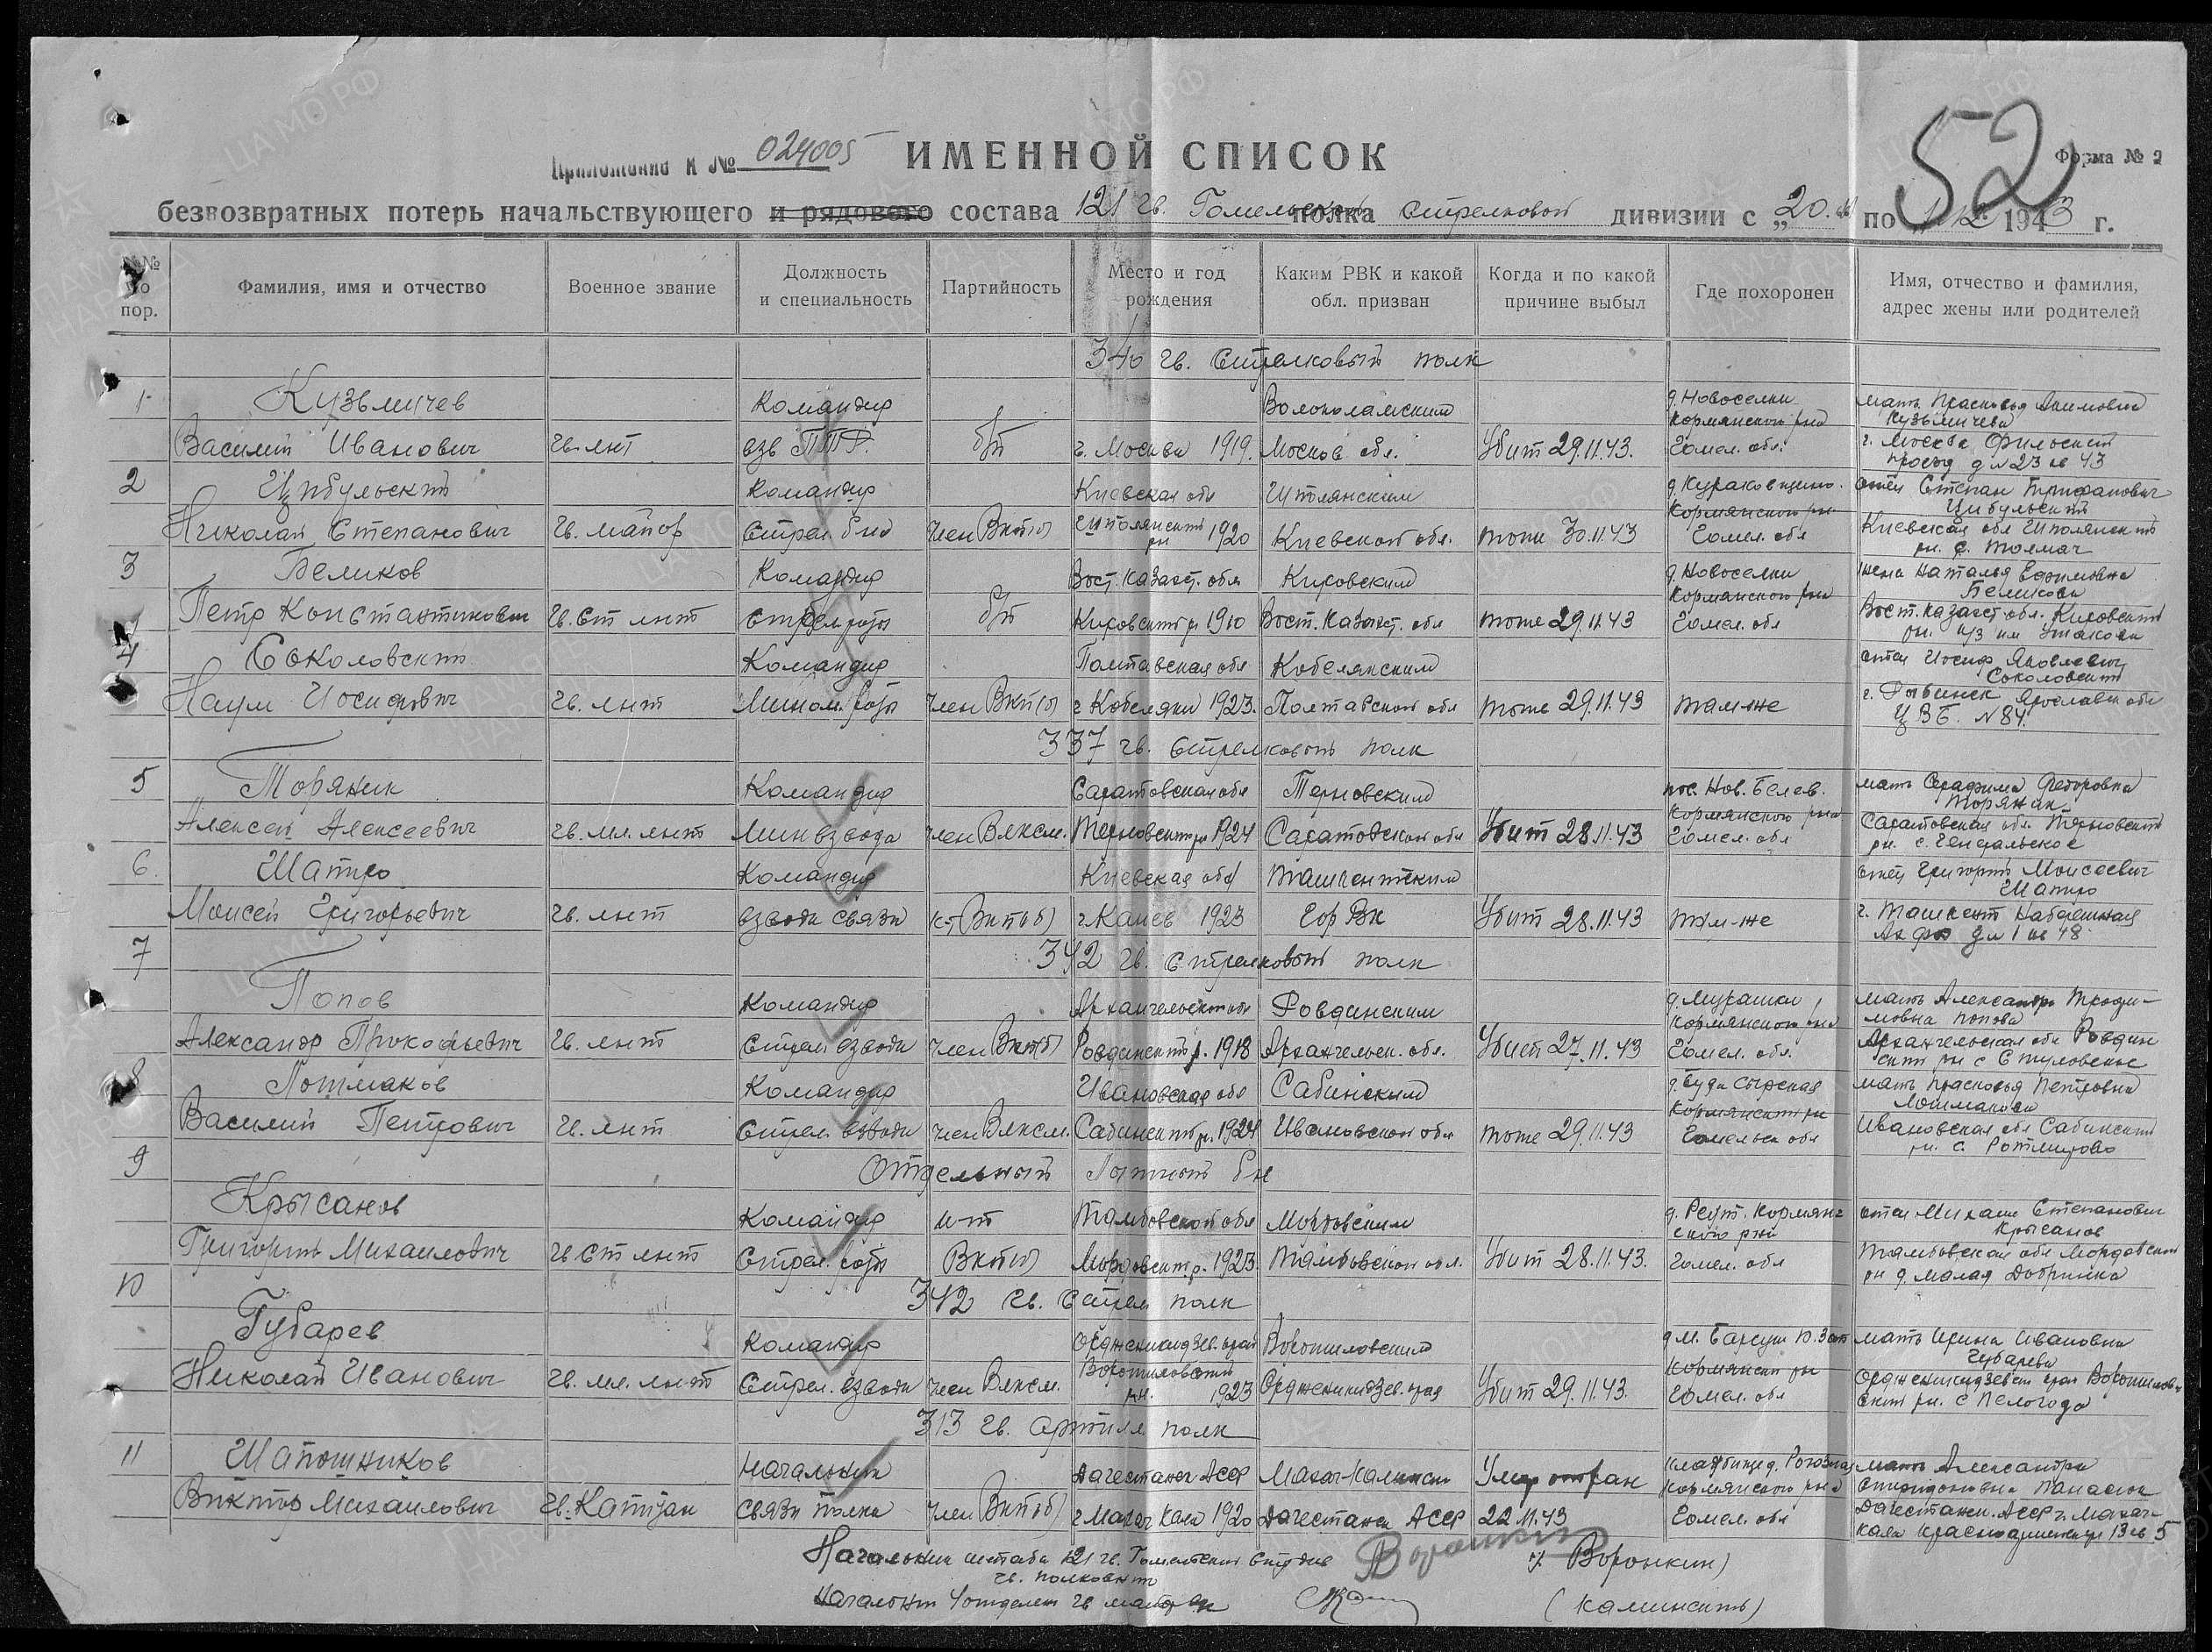 Приложение к № 024005
ИМЕННОЙ СПИСОК
Форма № 2
52
безвозвратных потерь начальствующего и рядового состава 121 гв. Гомельской полка стрелковой дивизии с „20. по 12 1943 г.
№№ по пор.
Фамилия, имя и отчество
Военное звание
Должность и специальность
Партийность
Место и год рождения
Каким РВК и какой обл. призван
Когда и по какой причине выбыл
Где похоронен
Имя, отчество и фамилия, адрес жены или родителей
340 гв. стрелковый полк
1 Кузьмичев Командир Волоколамским д. Новоселки мать Прасковья Акимовна
Кормянского р-на Кузьмичева
Василий Иванович гв. лнт взв ПТР б/п г. Москва 1919. Москов. обл. Убит 29.11.43. Гомел. обл. г. Москва Фильский
проезд д №23 кв 43
2 Цибульский Командир Киевская обл Шполянским отец Степан Трифанович
Кормянского рн Цибульский
Николай Степанович гв. майор стрел. б-на член ВКП(б) Шполянский рн 1920 Киевской обл. тоже 30.11.43 Гомел. обл Киевская обл Шполянский
рн. с. Толмач
3 Беликов Командир Вост. Казахст. обл Кировским д. Новоселки жена Наталья Ефимовна
Кормянского р-на Беликова
Петр Константинович гв. ст лнт стрел роты б/п Кировский р 1910 Вост. Казахст. обл тоже 29.11.43 Гомел. обл Вост. Казахст. обл. Кировский
рн.
4 Соколовский Командир Полтавская обл Кобелякским отец Иосиф Яковлевич
Соколовский
Наум Иосифович гв. лнт Мином. роты член ВКП(б) г Кобеляки 1923. Полтавской обл тоже 29.11.43 там-же г. Рыбинск Ярославск обл
Ц В Б. №84.
337 гв. стрелковый полк
5 Моряник Командир Саратовская обл Терновским пос. Нов. Белев. мать Серафима Федоровна
Кормянского р-на Моряник
Алексей Алексеевич гв. мл. лнт Мин взвода член ВЛКСМ. Терновский р 1924 Саратовской обл Убит 28.11.43 Гомел. обл Саратовская обл. Терновский
рн. с.
6. Шапиро Командир Киевская обл Ташкентским отец Григорий Моисеевич
Шапиро
Моисей Григорьевич гв. лнт взвода связи к-т ВКП(б) г. Канев 1923 Гор Вк Убит 28.11.43 там-же г. Ташкент Набережная
д № 1 кв 48
7 342 гв. стрелковый полк
Попов Командир Архангельской обл Ровдинским д. Мурашки мать Александра Троди-
Кормянского р-на мовна Попова
Александр Прокофьевич гв. лнт Стрел. взвода член ВКП(б) Ровдинский р. 1918 Архангельск. обл. Убит 27.11.43 Гомел. обл. Архангельская обл Ровдин
ский рн с
8 Лошмаков Командир Ивановская обл Савинским мать Прасковья Петровна
Кормянский рн Лошмакова
Василий Петрович гв. лнт Стрел. взвода член ВЛКСМ. Савинский р. 1924 Ивановской обл тоже 29.11.43 Гомельск обл Ивановская обл Савинский
рн. с.
9 Отдельный Лыжный Бн
Крысанов Командир к-т Тамбовской обл Мордовским д. Реут. Кормян- отец Михаил Степанович
ского р-на Крысанов
Григорий Михаилович гв. ст лнт Стрел. роты ВКП(б) Мордовский р. 1923 Тамбовской обл. Убит 28.11.43. Гомел. обл Тамбовская обл Мордовский
рн д. Малая Добринка
10 342 гв. Стрел полк
Губарев Командир Орджоникидзев. край Ворошиловским мать Ирина Ивановна
Кормянский рн Губарева
Николай Иванович гв. мл. лнт Стрел. взвода член ВЛКСМ. Ворошиловский рн. 1923 Орджоникидзев. края Убит 29.11.43. Гомел. обл Орджоникидзевск край Ворошилов-
ский рн. с Пелогода
313 гв. Артилл полк
11 Шапошников Начальник Дагестанск АССР Махач-Калинским Умер от ран кладбище д. мать Александра
Кормянского р-на Спиридоновна Панасюк
Виктор Михаилович гв. Капитан связи полка член ВКП(б) г Махач Кала 1920 Дагестанск АССР 22.11.43 Гомел. обл Дагестанск. АССР г. Махач-
Кала Красноармейская 13 кв 5
Начальник штаба 121 гв. Гомельской стр див
гв. полковник
Воронкин
/ Воронкин)
Начальник 4 отделен гв майор
(Каминский)